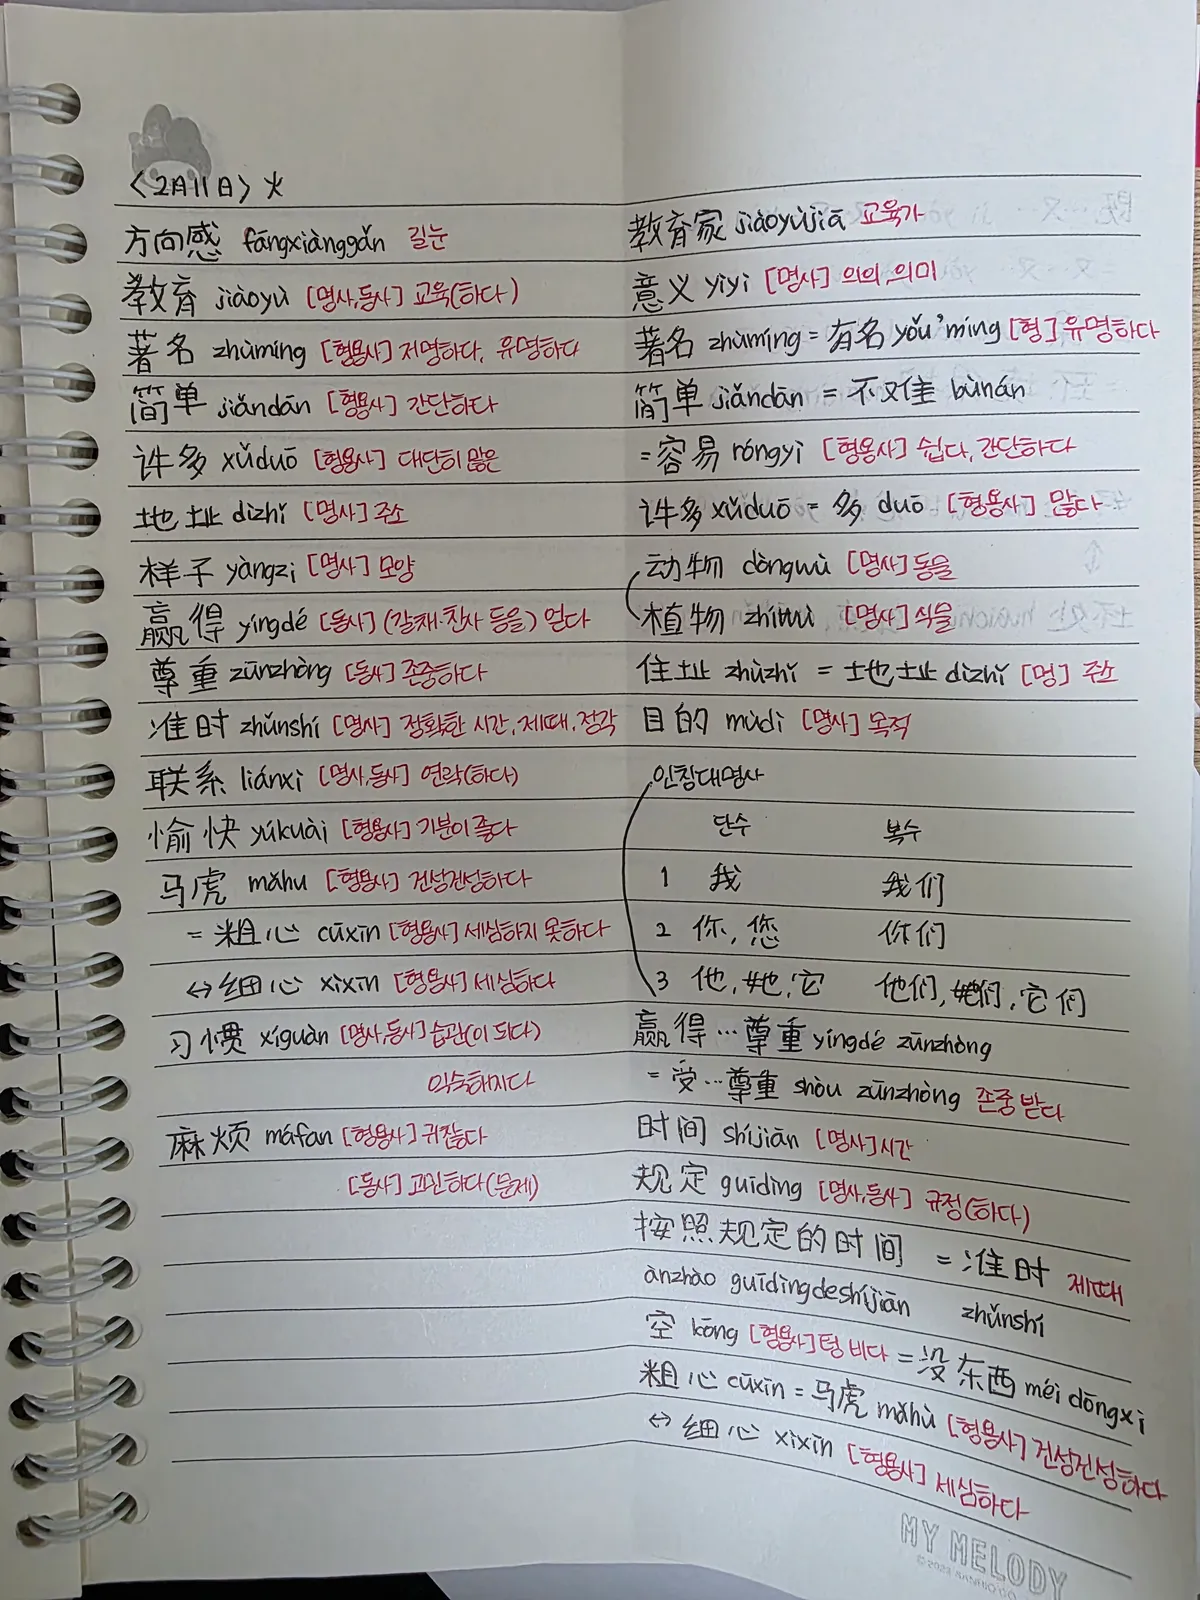 <2月11日> 火
方向感 fāngxiànggǎn 길눈
教育 jiàoyù [명사,동사] 교육(하다)
著名 zhùmíng [형용사] 저명하다, 유명하다
简单 jiǎndān [형용사] 간단하다
许多 xǔduō [형용사] 대단히 많은
地址 dìzhǐ [명사] 주소
样子 yàngzi [명사] 모양
赢得 yíngdé [동사] (갈채·찬사 등을) 얻다
尊重 zūnzhòng [동사] 존중하다
准时 zhǔnshí [명사] 정확한 시간, 제때, 정각
联系 liánxì [명사,동사] 연락(하다)
愉快 yúkuài [형용사] 기분이 좋다
马虎 mǎhu [형용사] 건성건성하다
= 粗心 cūxīn [형용사] 세심하지 못하다
↔ 细心 xìxīn [형용사] 세심하다
习惯 xíguàn [명사,동사] 습관(이 되다)
익숙해지다
麻烦 máfan [형용사] 귀찮다
[동사] 고민하다(문제)
教育家 jiàoyùjiā 교육가
意义 yìyì [명사] 의의, 의미
著名 zhùmíng = 有名 yǒu'míng [형] 유명하다
简单 jiǎndān = 不难 bùnán
= 容易 róngyì [형용사] 쉽다, 간단하다
许多 xǔduō = 多 duō [형용사] 많다
动物 dòngwù [명사] 동물
植物 zhíwù [명사] 식물
住址 zhùzhǐ = 地址 dìzhǐ [명] 주소
目的 mùdì [명사] 목적
인칭대명사
단수 복수
1 我 我们
2 你, 您 你们
3 他, 她, 它 他们, 她们, 它们
赢得…尊重 yíngdé zūnzhòng
= 受…尊重 shòu zūnzhòng 존중 받다
时间 shíjiān [명사] 시간
规定 guīdìng [명사,동사] 규정(하다)
按照规定的时间 = 准时 제때
ànzhào guīdìngdeshíjiān zhǔnshí
空 kōng [형용사] 텅 비다 = 没东西 méi dōngxi
粗心 cūxīn = 马虎 mǎhù [형용사] 건성건성하다
↔ 细心 xìxīn [형용사] 세심하다
MY MELODY